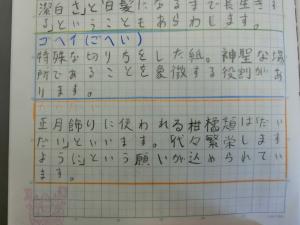 潔白さ」と「白髪になるまで長生きす
る」ということもあらわします。
コヘイ(ごへい)
特殊な切り方をした紙。神聖な場
所であることを象徴する役割があ
ります。
正月飾りに使われる柑橘類はだい
だいといいます。代々繁栄します
ように」という願いが込められてい
ます。